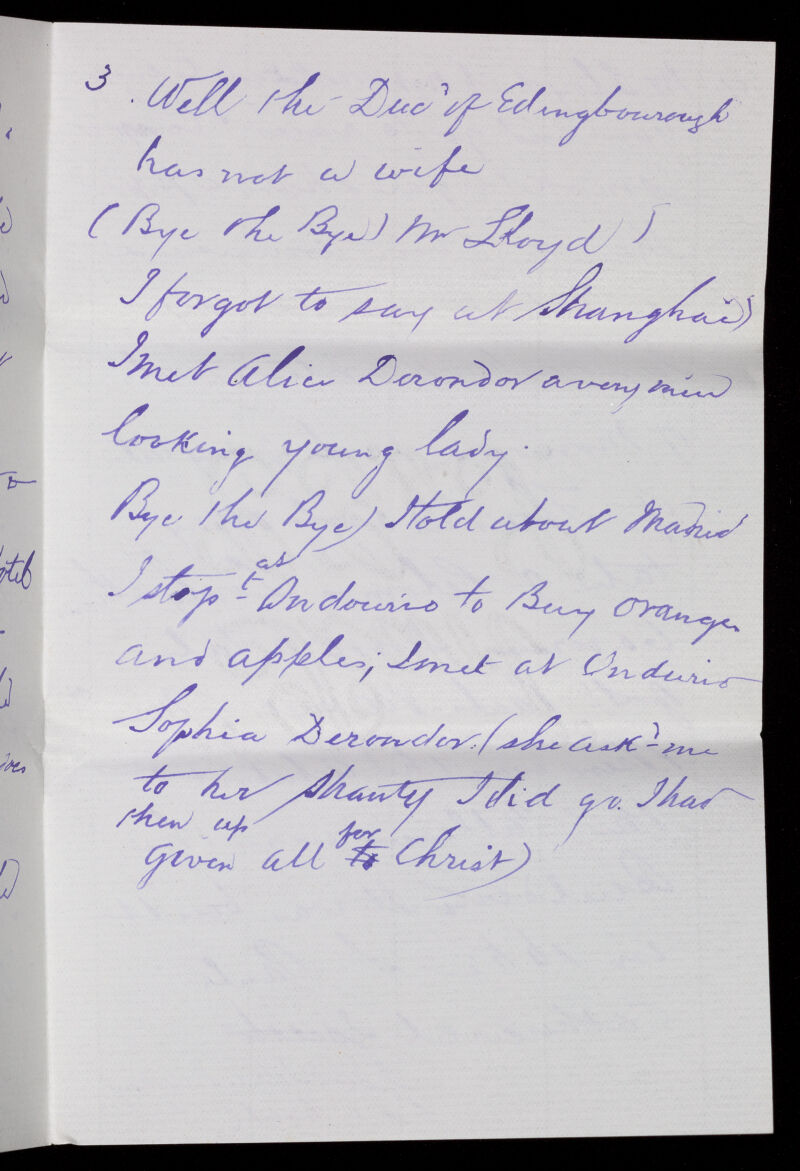 3. Well the Duc' of Edingbourough
has not a wife
(Bye the Bye) Mr Lloyd)
I forgot to say at Shanghai)
I met Alice Derondor a very nice
looking young lady.
Bye the Bye) I told about Madrid
I stop-t at Andourio to Buy oranges
and apples; I met at Andurio
Sophia Derondor. (she ask'-me
to her shanty I did go. I had
then up for
given all to Christ)